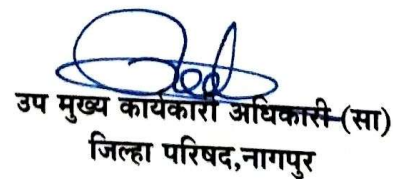 उप मुख्य कार्यकारी अधिकारी (सा)
जिल्हा परिषद,नागपुर